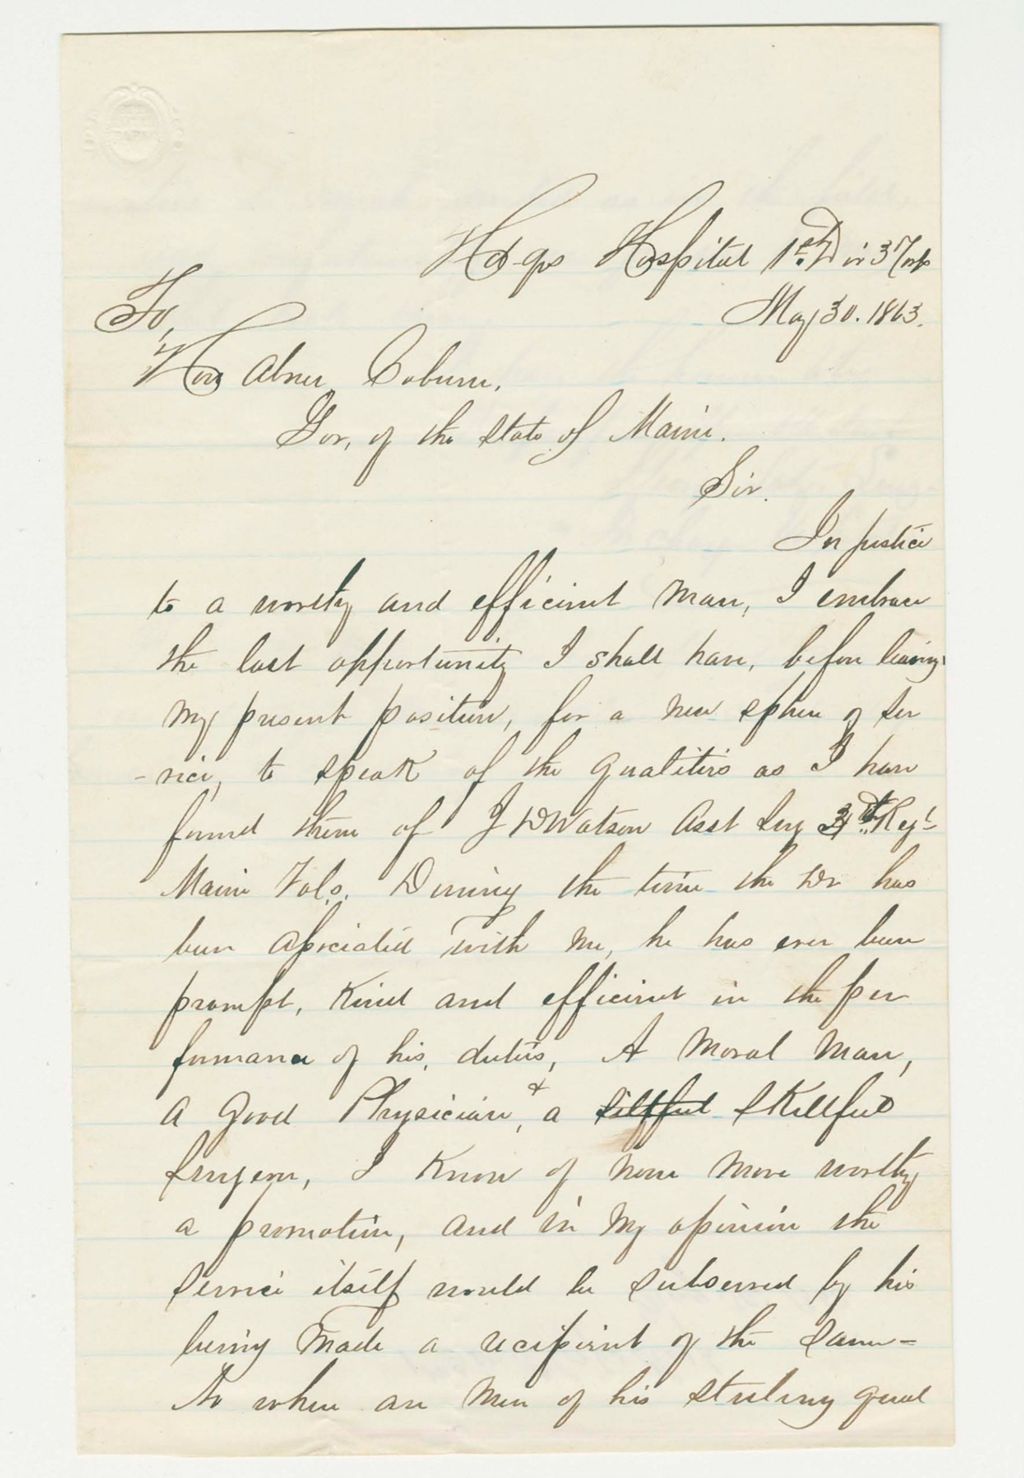 Hd-qrs Hospital 1st Div 3d Corps
May 30. 1863.
To,
Hon Abner Coburn,
Gov, of the State of Maine.
Sir.
In justice
to a worthy and efficient man, I embrace
the last opportunity I shall have, before leaving
my present position, for a new sphere of ser
-vice, to speak of the qualities as I have
found them of J D Watson Asst Surg Regt
Maine Vols. During the time the Dr has
been associated with me, he has ever been
prompt, kind and efficient in the per
formance of his, duties, A moral man,
a good Physician, & a skillful
Surgeon, I know of none more worthy
a promotion, and in my opinion the
Service itself would be subserved by his
being made a recipient of the same-
No where are men of his sterling qual